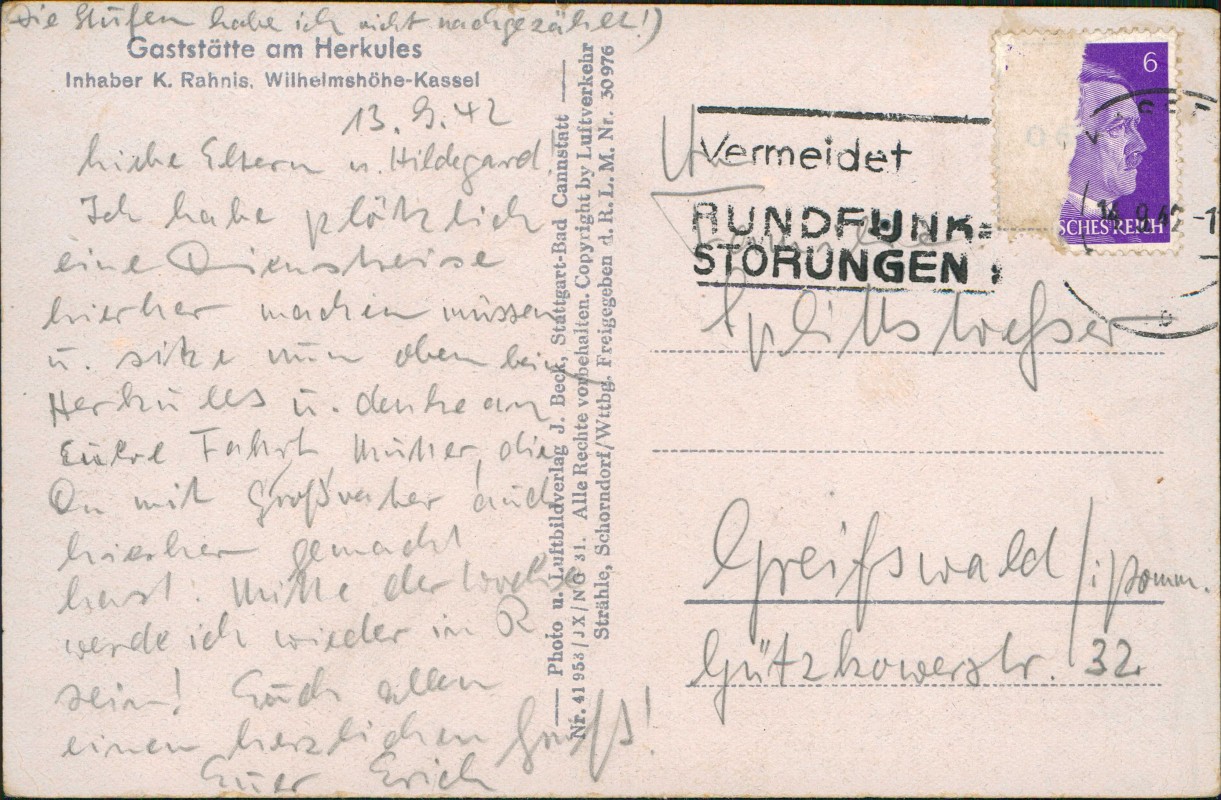 (Die Stufen habe ich nicht nachgezählt!)
Gaststätte am Herkules
Inhaber K. Rahnis, Wilhelmshöhe-Kassel
13.9.42
Liebe Eltern u. Hildegard.
Ich habe plötzlich
eine Dienstreise
hierher machen müssen
u. sitze nun oben beim
Herkules u. denke an
Eure Fahrt, Mutter, die
Du mit Großvater auch
hierher gemacht
hast. Mitte der Woche
werde ich wieder in R
sein! Euch allen
einen herzlichen Gruß!
Euer Erich
Photo u. Luftbildverlag J. Beck, Stattgart-Bad Cannstatt
Nr. 41953/JX/NG 31. Alle Rechte vorbehalten. Copyright by Luftverkehr
Strähle, Schorndorf/Wttbg. Freigegeben d. R.L.M. Nr. 30976
Vermeidet
RUNDFUNK-
STÖRUNGEN!
6
SCHES REICH
14.9.42-1
Splittstoesser
Greifswald/i Pomm.
Gützkowerstr. 32.